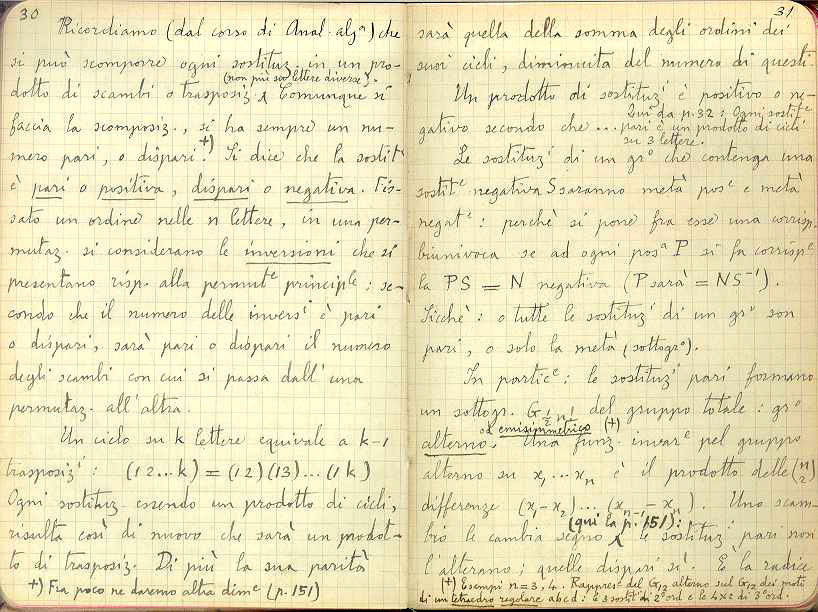 30
Ricordiamo (dal corso di Anal. algª) che
si può scomporre ogni sostituz. in un pro-
(non più su lettere diverse).
dotto di scambi o trasposiz. Comunque si
faccia la scomposiz., si ha sempre un nu-
mero pari, o dispari.+) Si dice che la sostitᵉ
è pari o positiva, dispari o negativa. Fis-
sato un ordine nelle n lettere, in una per-
mutaz. si considerano le inversioni che si
presentano risp. alla permutᵉ principˡᵉ: se-
condo che il numero delle inversⁱ è pari
o dispari, sarà pari o dispari il numero
degli scambi con cui si passa dall'una
permutaz. all'altra.
Un ciclo su k lettere equivale a k-1
trasposizⁱ: (12...k) = (12)(13)...(1k)
Ogni sostituz. essendo un prodotto di cicli,
risulta così di nuovo che sarà un prodot-
to di trasposiz. Di più la sua parità
+) Fra poco ne daremo altra dimᵉ (p. 151)
31
sarà quella della somma degli ordini dei
suoi cicli, diminuita del numero di questi.
Un prodotto di sostituzⁱ è positivo o ne-
gativo secondo che ...
Qui da p. 32: Ogni sostitᵉ
pari è un prodotto di cicli
su 3 lettere.
Le sostituzⁱ di un grº che contenga una
sostitᵉ negativa S saranno metà posᵉ e metà
negatᵉ: perchè si pone fra esse una corrisp.
biunivoca se ad ogni posª P si fa corrispᵉ
la PS = N negativa (P sarà = NS⁻¹).
Sicchè: o tutte le sostituzⁱ di un grº son
pari, o solo la metà (sottogrº).
In particᵉ: le sostituzⁱ pari formano
un sottogr. G½n! del gruppo totale: grº
od emisimmetrico (+)
alterno. Una funz. invarᵉ pel gruppo
alterno su x₁...xₙ è il prodotto delle (n 2)
differenze (x₁-x₂)...(xₙ₋₁-xₙ). Uno scam-
(qui la p. 151):
bio le cambia segno; le sostituzⁱ pari non
l'alterano; quelle dispari sì. È la radice
(+) Esempi n=3, 4. Rappresᵉ del G₁₂ alterno sul G₁₂ dei moti
di un tetraedro regolare abcd: le 3 sostitⁱ di 2º ord e le 4x2 di 3º ord.